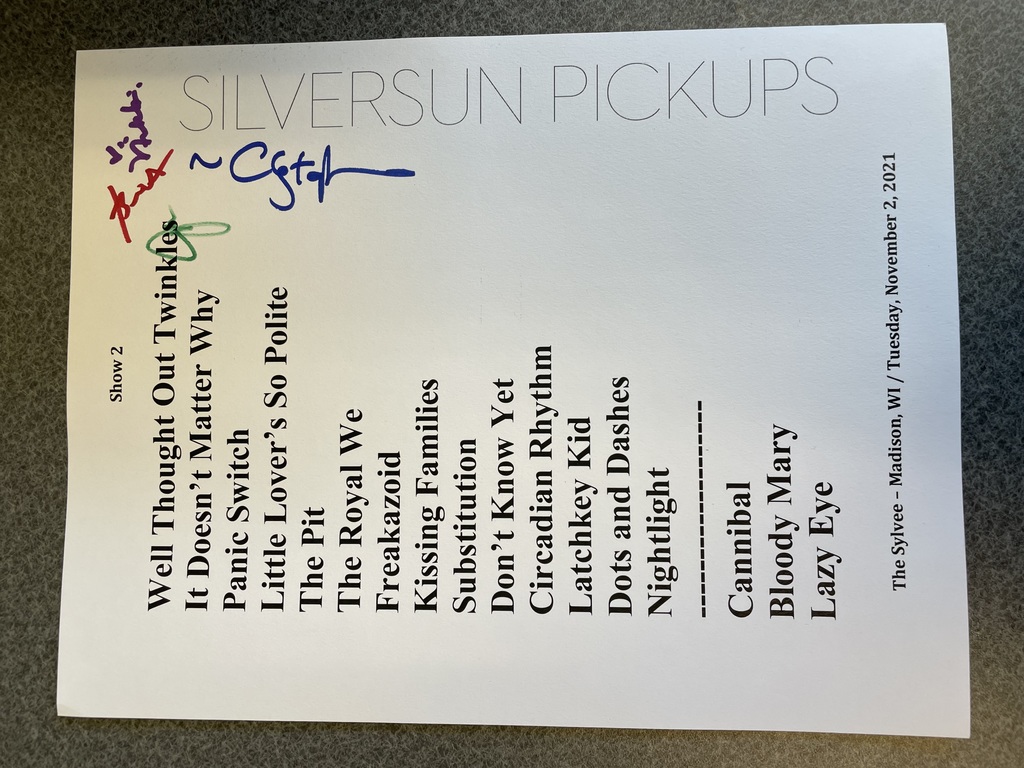 Show 2
Well Thought Out Twinkles
It Doesn't Matter Why
Panic Switch
Little Lover's So Polite
The Pit
The Royal We
Freakazoid
Kissing Families
Substitution
Don't Know Yet
Circadian Rhythm
Latchkey Kid
Dots and Dashes
Nightlight
--------------------------
Cannibal
Bloody Mary
Lazy Eye
The Sylvee – Madison, WI / Tuesday, November 2, 2021
SILVERSUN PICKUPS